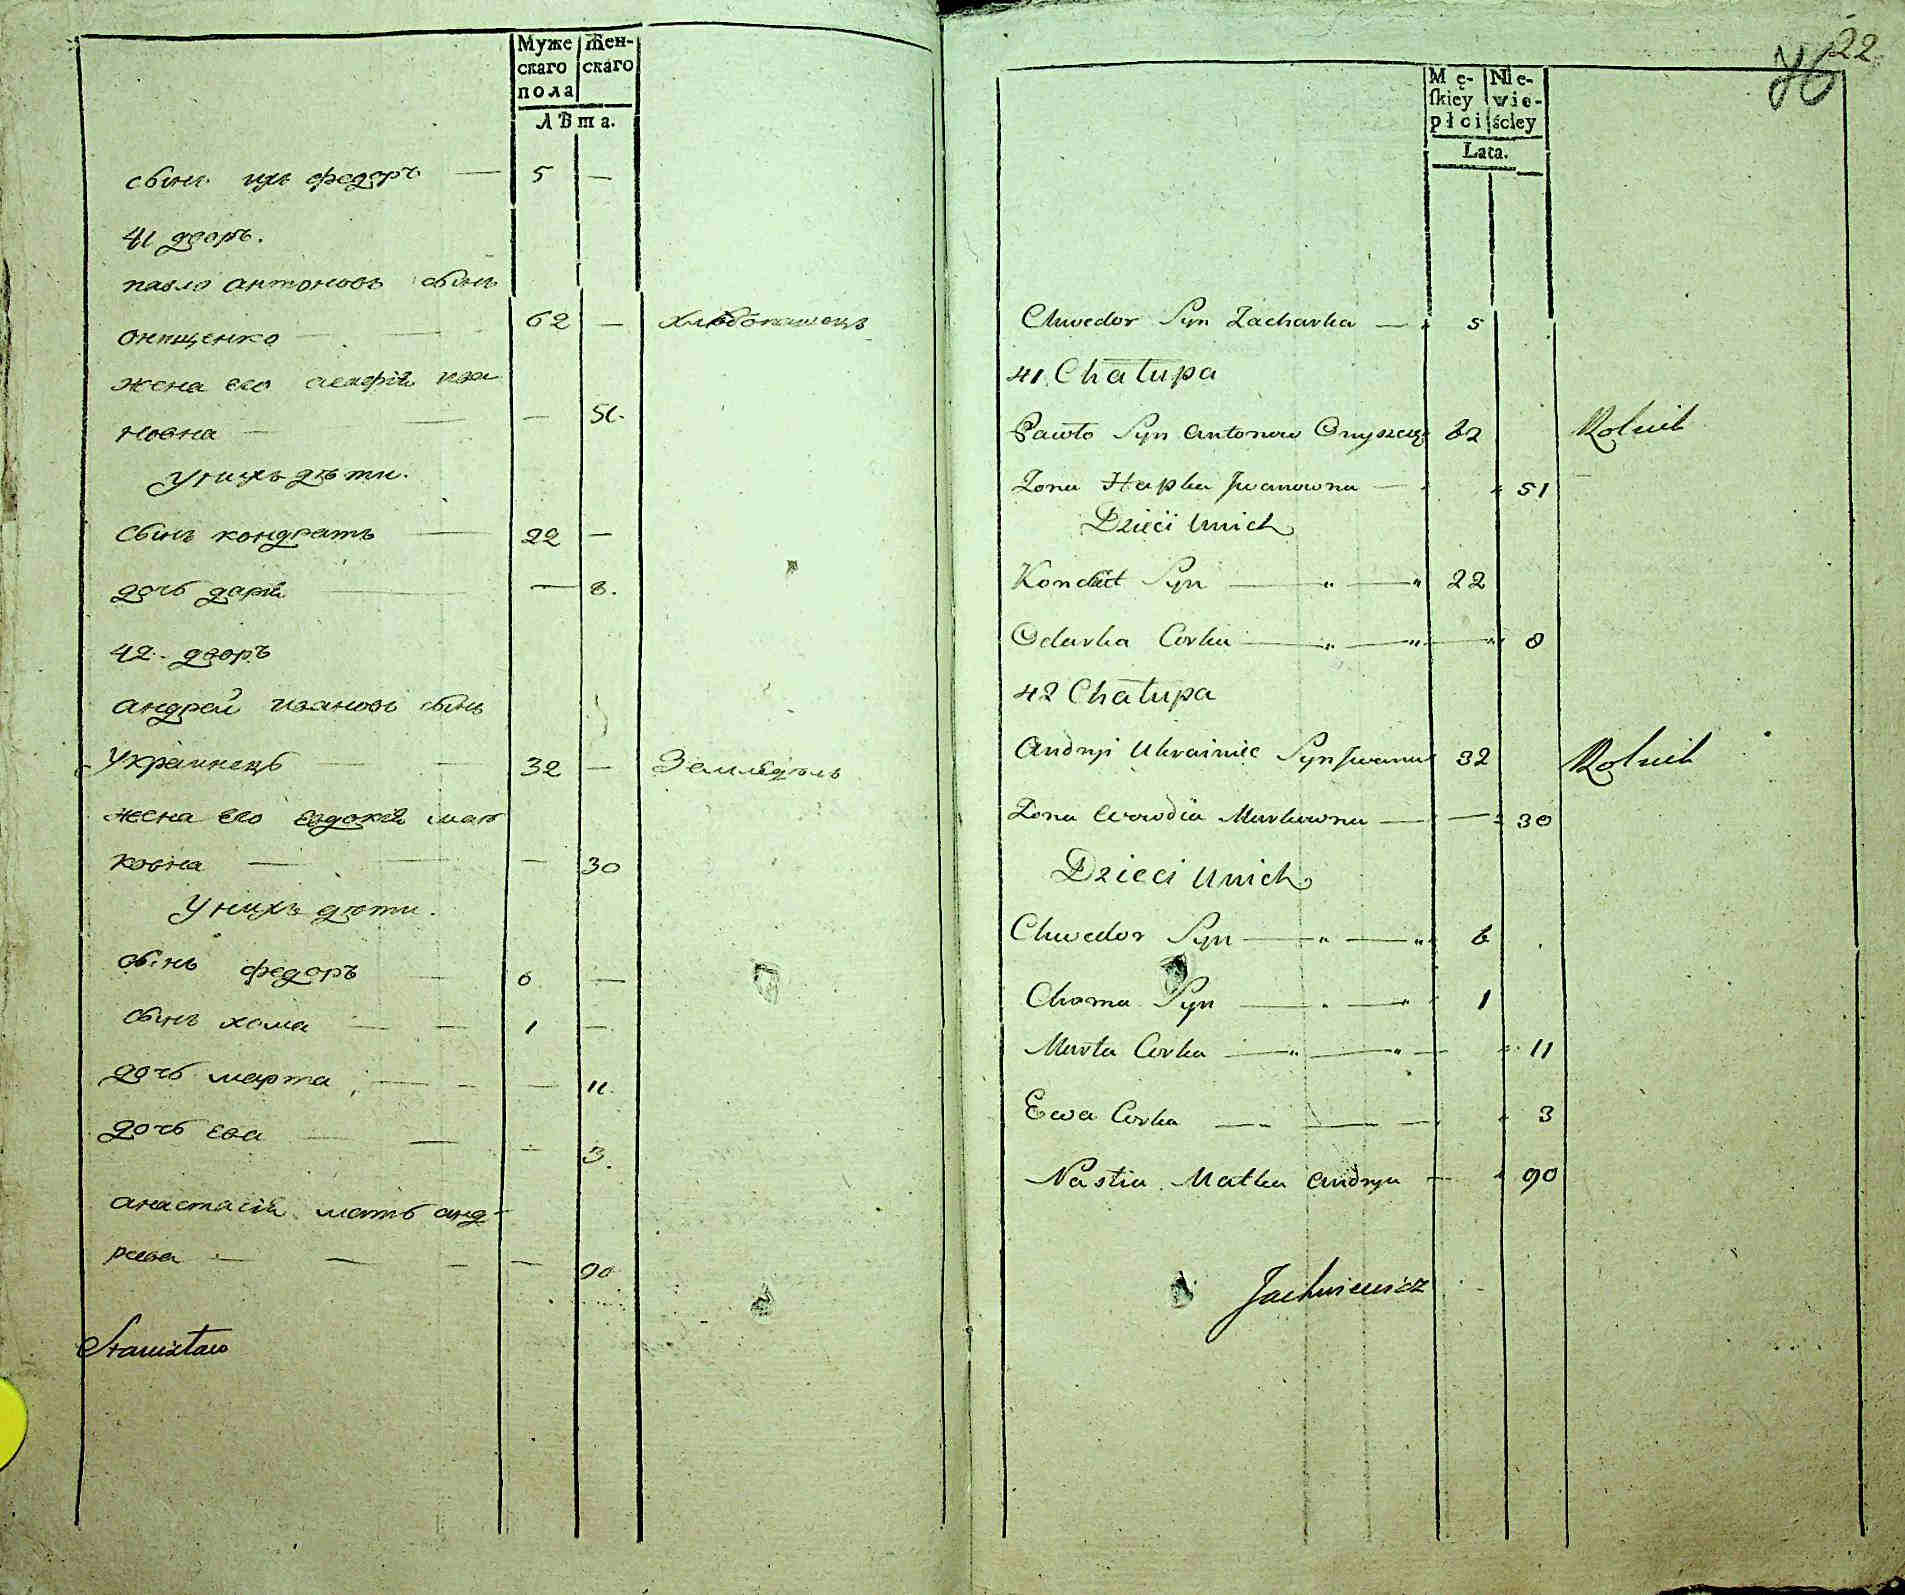 Муже
скаго
пола
Жен-
скаго
Лѣта.
сынъ ихъ федоръ — 5 —
41 дворъ.
павло антоновъ сынъ
онищенко — — 62 — Хлебопашецъ
жена его агафія ива
новна — — — 51.
У нихъ дѣти.
Сынъ кондратъ — 22 —
дочь дарія — — 8.
42. дворъ
андрей ивановъ сынъ
Украинецъ — — 32 — Земледѣль
жена его евдокія мар
ковна — — — 30
У нихъ дѣти.
сынъ федоръ — 6 —
сынъ хома — — 1 —
дочь марта — — — 11.
дочь ева — — — 3.
анастасія мать анд-
реева — — — — 90
Stanisław
22
76
Mę-
skiey
płci
Nie-
wie-
ściey
Lata.
Chwedor Syn Zacharka — 5
41. Chałupa
Pawło Syn Antonow Onyszcz 62 Rolnik
Żona Hapka Jwanowna — 51
Dzieci Unich
Kondrat Syn — „ — „ 22
Odarka Corka — „ — „ — „ 8
42 Chałupa
Andryi Ukrainiec Syn Jwanow 32 Rolnik
Żona Ewwdia Markowna — — 30
Dzieci Unich
Chwedor Syn — „ — „ 6
Choma Syn — „ — „ 1
Marta Corka — „ — „ — „ 11
Ewa Corka — — — 3
Nastia Matka Andryia — 90
Jachniewicz